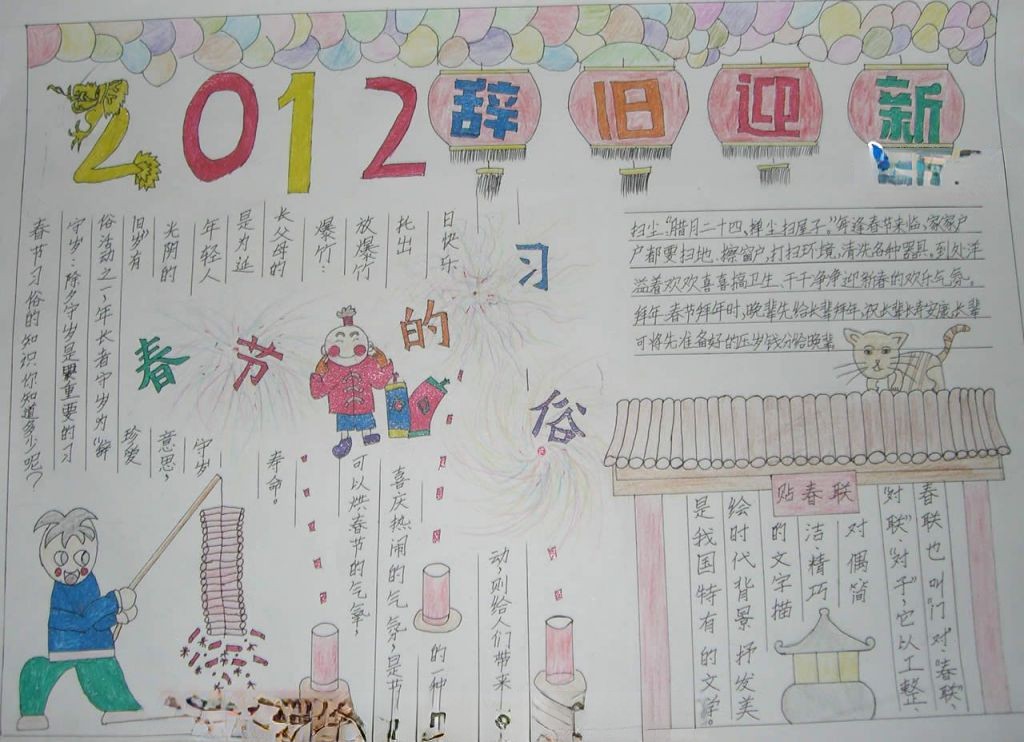 2012辞旧迎新
春节的习俗
春节习俗的知识你知道多少呢?
守岁:除夕守岁是最重要的习
俗活动之一,年长者守岁为“辞
旧岁”有
珍爱
光阴的
意思,
年轻人
守岁
是为延
长父母的
寿命。
爆竹:
放爆竹
可以烘春节的气氛,
托出
喜庆热闹的气氛,是节
日快乐
的一种
动,则给人们带来
扫尘:“腊月二十四,掸尘扫屋子。”年逢春节来临,家家户
户都要扫地、擦窗户,打扫环境,清洗各种器具。到处洋
溢着欢欢喜喜搞卫生、干干净净迎新春的欢乐气氛。
拜年:春节拜年时,晚辈先给长辈拜年,祝长辈长寿安康,长辈
可将先准备好的压岁钱分给晚辈
贴春联
春联也叫“门对”“春联”、
“对联”、“对子”,它以工整、
对偶、简
洁、精巧
的文字描
绘时代背景抒发美
是我国特有的文学